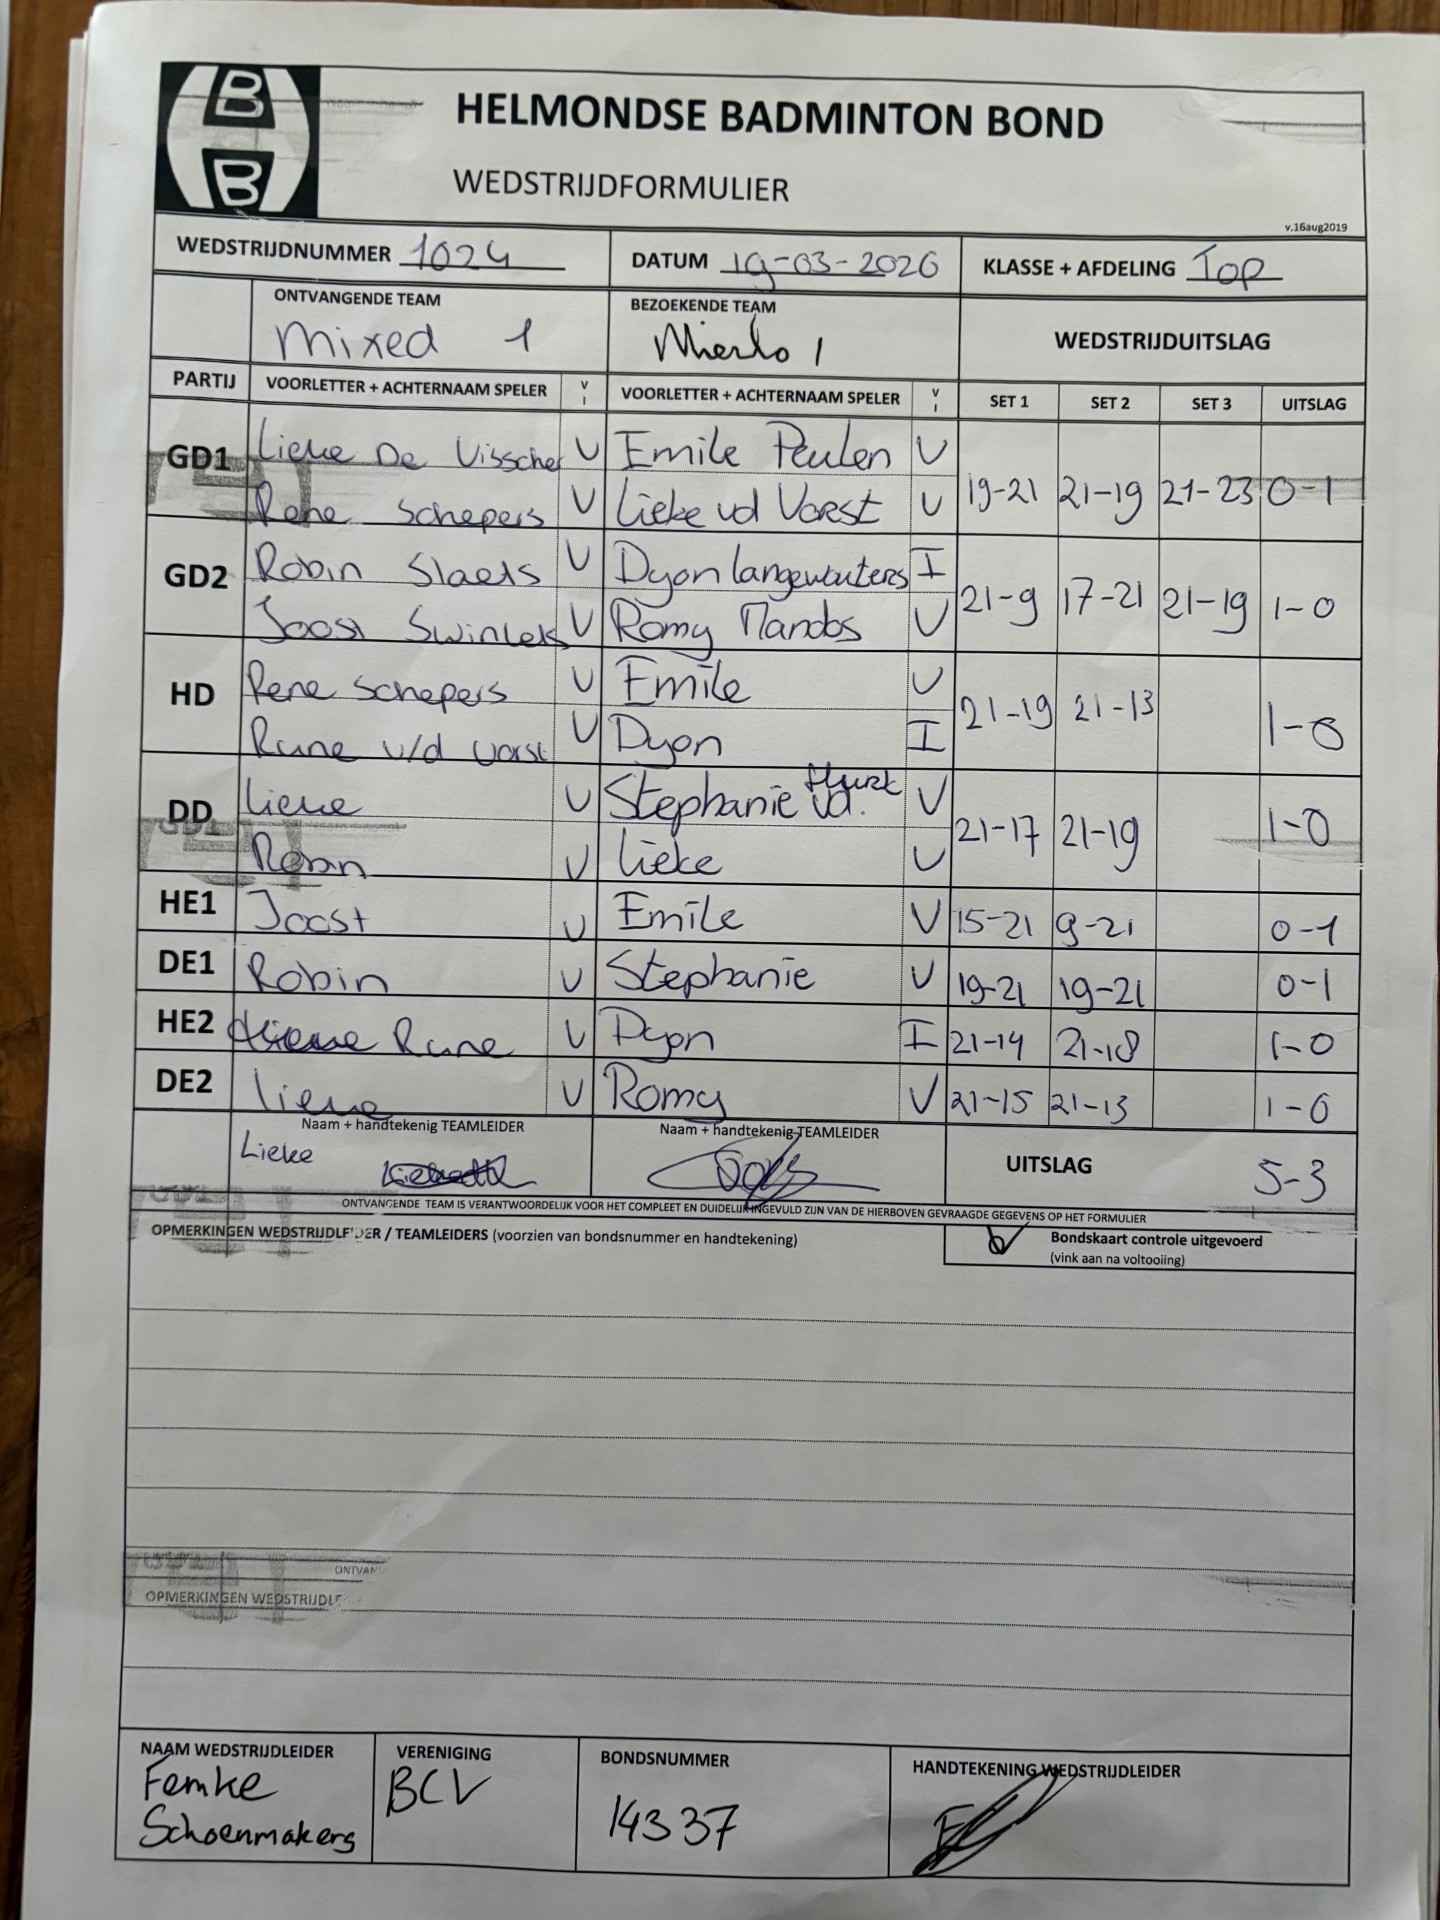 HELMONDSE BADMINTON BOND
WEDSTRIJDFORMULIER
v.16aug2019
WEDSTRIJDNUMMER 1024 DATUM 19-03-2026 KLASSE + AFDELING Top
ONTVANGENDE TEAM BEZOEKENDE TEAM WEDSTRIJDUITSLAG
Mixed 1 Mierlo 1
PARTIJ VOORLETTER + ACHTERNAAM SPELER V I VOORLETTER + ACHTERNAAM SPELER V I SET 1 SET 2 SET 3 UITSLAG
GD1 Lieke De Visscher V Emile Peulen V 19-21 21-19 21-23 0-1
Rene Schepers V Lieke vd Vorst V
GD2 Robin Slaets V Dyon langewouters I 21-9 17-21 21-19 1-0
Joost Swinkels V Romy Mandos V
HD Rene Schepers V Emile V 21-19 21-13 1-0
Rune v/d Vorst V Dyon I
DD Lieke V Stephanie vd. Hurk V 21-17 21-19 1-0
Robin V Lieke V
HE1 Joost V Emile V 15-21 9-21 0-1
DE1 Robin V Stephanie V 19-21 19-21 0-1
HE2 Rune V Dyon I 21-14 21-18 1-0
DE2 Lieke V Romy V 21-15 21-13 1-0
Naam + handtekenig TEAMLEIDER Naam + handtekenig TEAMLEIDER UITSLAG 5-3
Lieke
ONTVANGENDE TEAM IS VERANTWOORDELIJK VOOR HET COMPLEET EN DUIDELIJK INGEVULD ZIJN VAN DE HIERBOVEN GEVRAAGDE GEGEVENS OP HET FORMULIER
OPMERKINGEN WEDSTRIJDLEIDER / TEAMLEIDERS (voorzien van bondsnummer en handtekening) Bondskaart controle uitgevoerd
(vink aan na voltooiing)
ONTVAN
OPMERKINGEN WEDSTRIJDLE
NAAM WEDSTRIJDLEIDER VERENIGING BONDSNUMMER HANDTEKENING WEDSTRIJDLEIDER
Femke BCV 14337
Schoenmakers